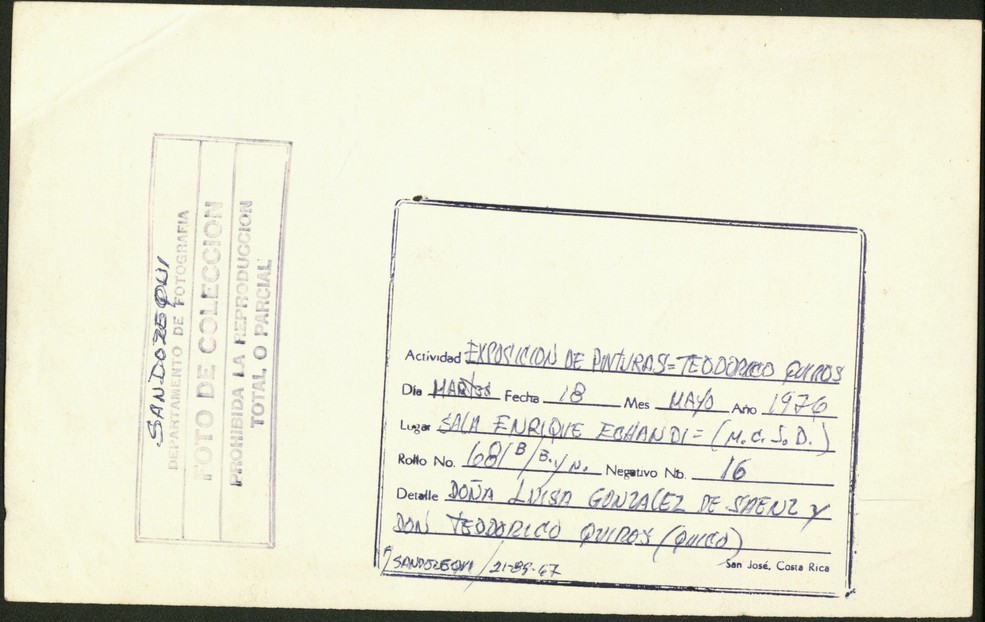 SANDOZEQUI
DEPARTAMENTO DE FOTOGRAFIA
FOTO DE COLECCION
PROHIBIDA LA REPRODUCCION
TOTAL O PARCIAL
Actividad EXPOSICION DE PINTURAS=TEODORICO QUIROS
Día MARTES Fecha 18 Mes MAYO Año 1976
Lugar SALA ENRIQUE ECHANDI=(M.C.J.D.)
Rollo No. 681/B/B.y N. Negativo No. 16
Detalle DOÑA LUISA GONZALEZ DE SAENZ Y
DON TEODORICO QUIROS (QUICO)
San José, Costa Rica
SANDOZEQUI/21-89-67